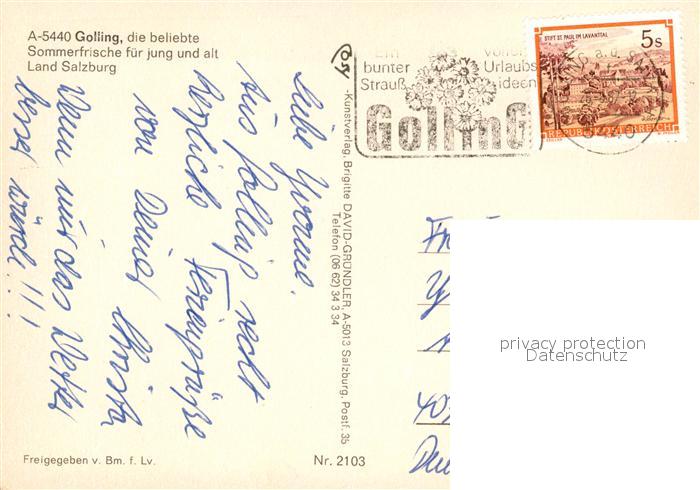 A-5440 Golling, die beliebte
Sommerfrische für jung und alt
Land Salzburg
Ein
bunter
Strauß
voller
Urlaubs
ideen
GollinG
STIFT ST. PAUL IM LAVANTTAL
5s
REPUBLIK ÖSTERREICH
Liebe Yvonne.
Aus Golling recht
herzliche Feriengrüße
von Deiner Christa
Wenn nur das Wetter
besser würde!!!
-Kunstverlag, Brigitte DAVID-GRÜNDLER, A-5013 Salzburg, Postf. 35
Telefon (06 62) 34 3 34
privacy protection
Datenschutz
Freigegeben v. Bm. f. Lv.
Nr. 2103